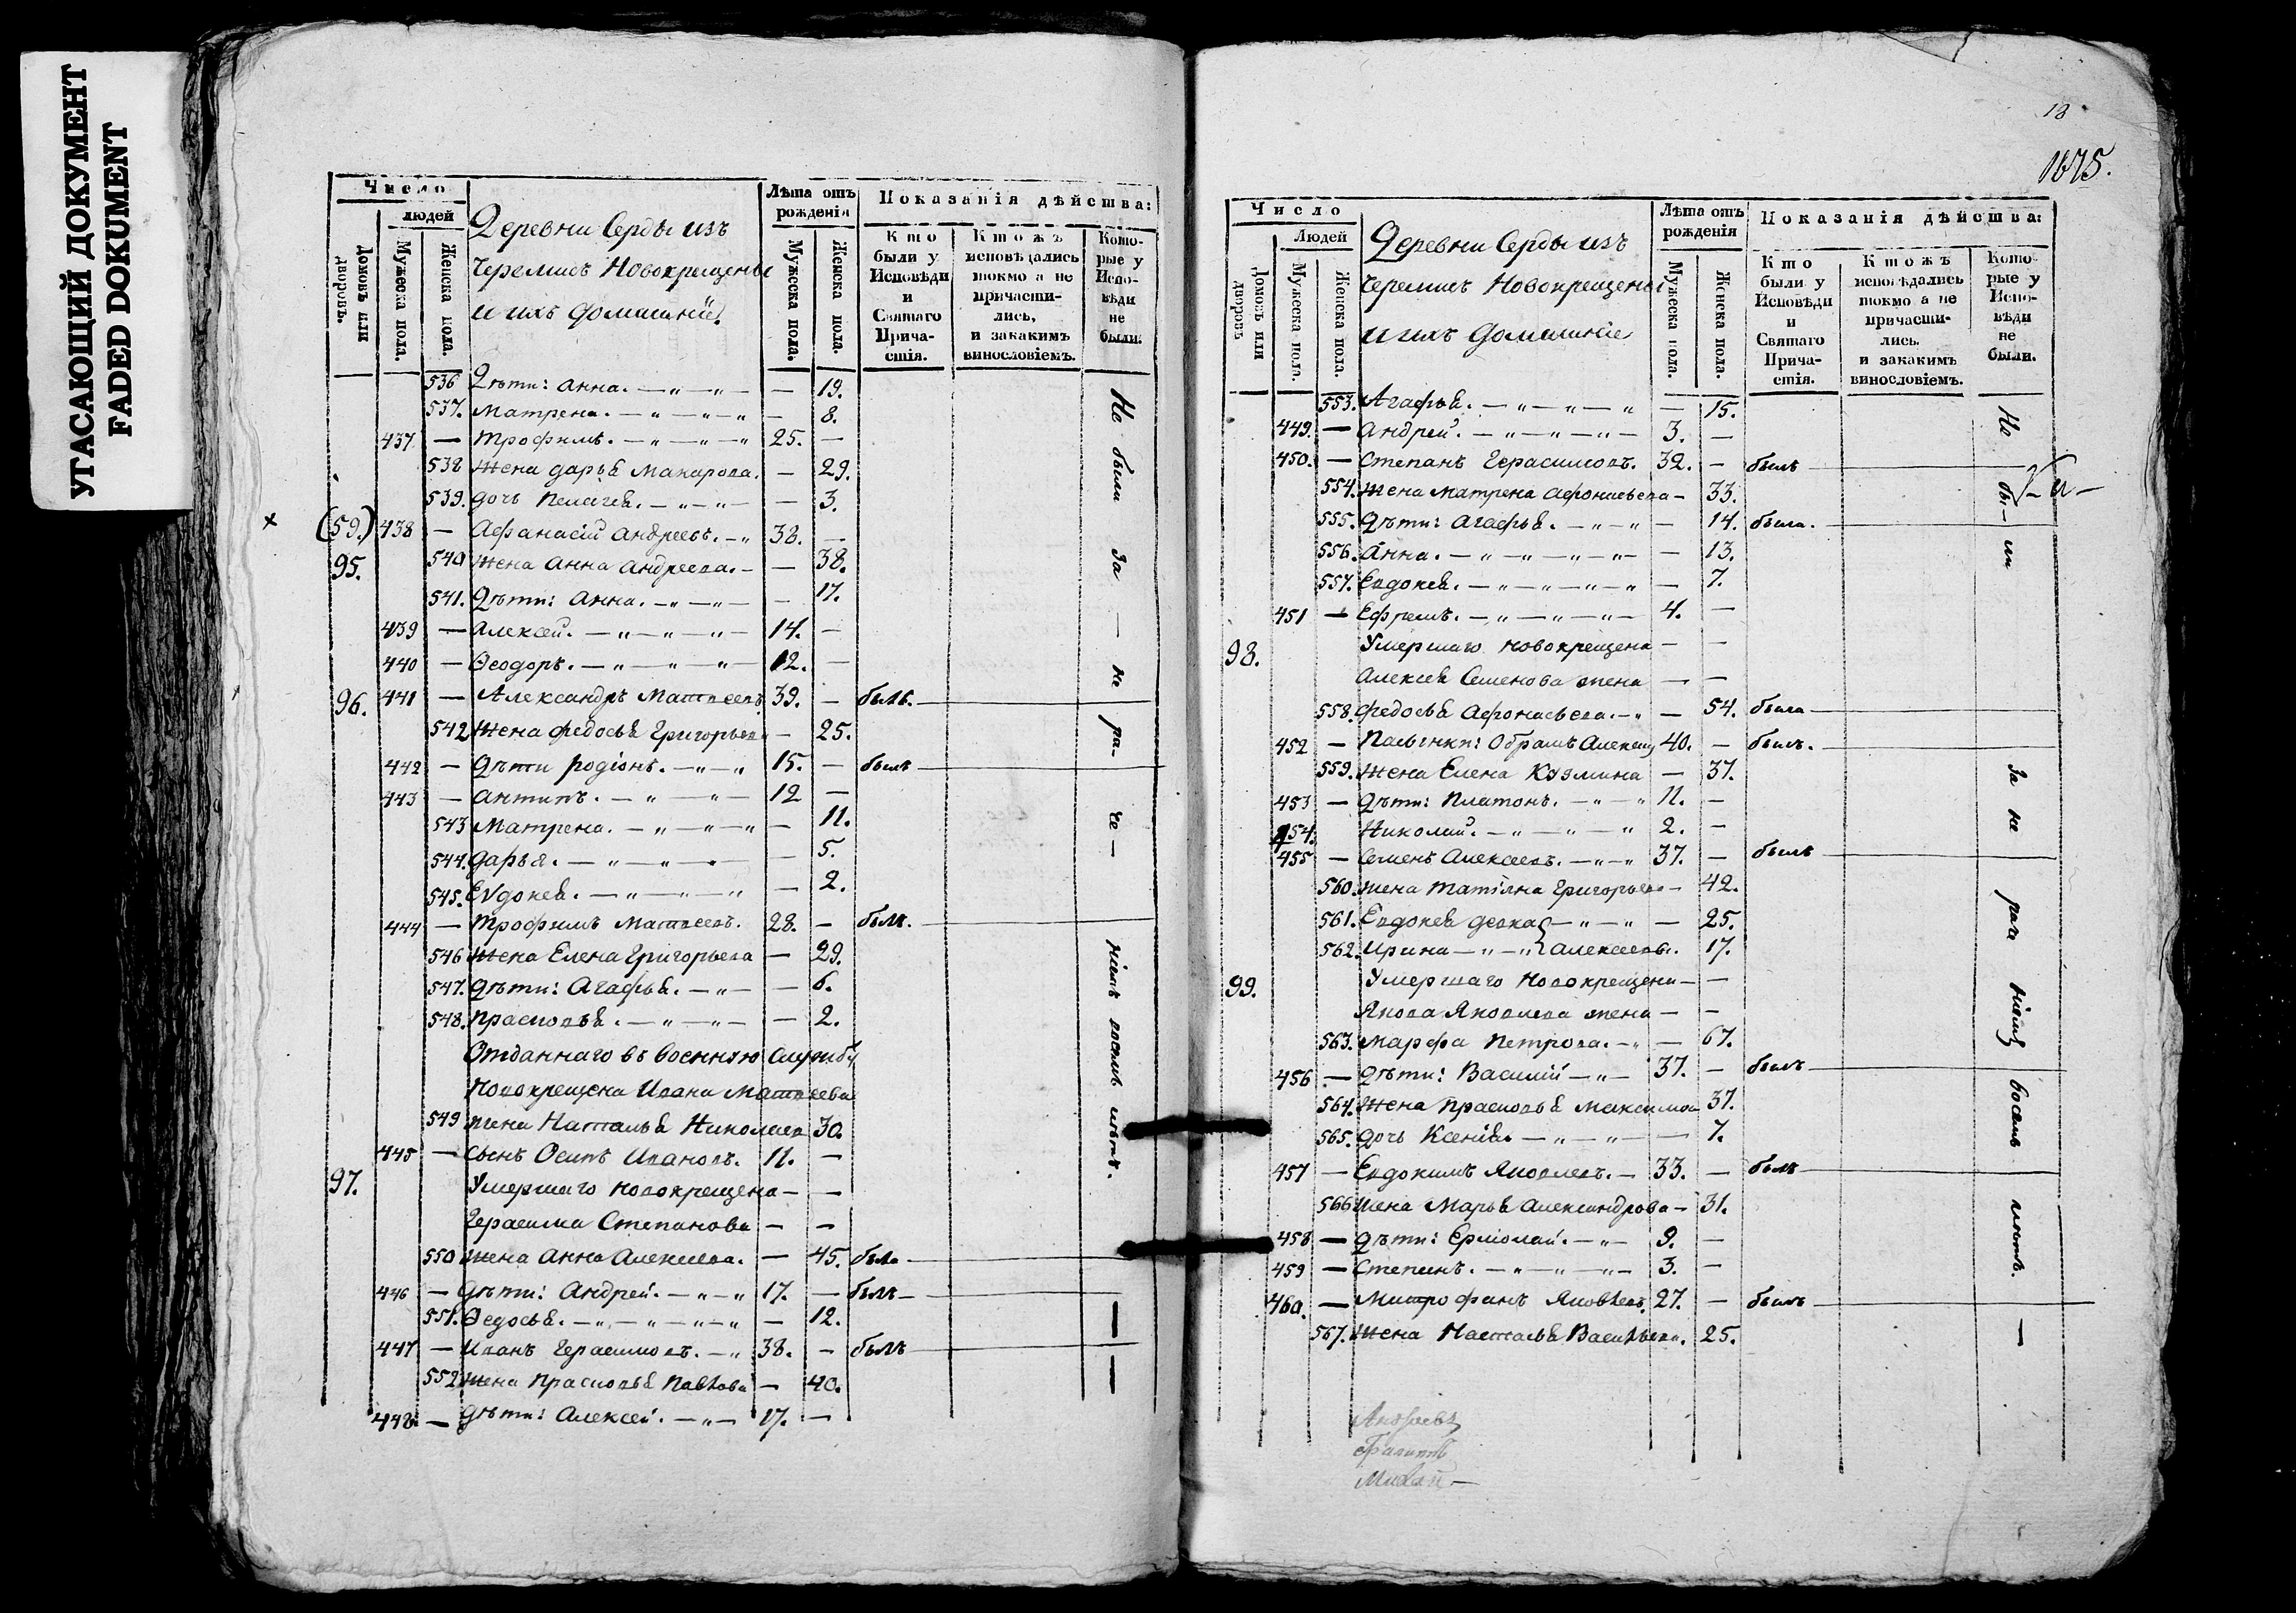 УГАСАЮЩИЙ ДОКУМЕНТ
FADED DOKUMENT
Число
людей
Домовъ или дворовъ.
Мужеска пола.
Женска пола.
Деревни Серды изъ
Черемисъ Новокрещены
и ихъ домашніи
Лѣта отъ рожденія
Мужеска пола.
Женска пола.
Показанія дѣйства:
Кто были у Исповѣди и Святаго Причастія.
Ктожъ исповѣдались токмо а не причастились, и закакимъ винословіемъ.
Которые у Исповѣди не были.
536 Дѣти: Анна. — 19.
537. Матрена. — 8.
437 — Трофимъ. 25. —
538 Жена Дарья Макарова. — 29.
539. Дочь Пелагея. — 3.
(59.) 438 — Афанасій Андреевъ. 38. —
95. 540 Жена Анна Андреева. — 38.
541. Дѣти: Анна. — 17.
439 — Алексей. 14. —
440 — Ѳеодоръ. 12. —
96. 441 — Александръ Матвеевъ. 39. — былъ.
542 Жена Федосья Григорьева — 25.
442 — Дѣти Родіонъ. 15. — былъ
443 — Антипъ. 12 —
543 Матрена. — 11.
544. Дарья. — 5.
545. Еvдокея. — 2.
444 — Трофимъ Матвеевъ. 28. — былъ.
546 Жена Елена Григорьева — 29.
547. Дѣти: Агафья. — 6.
548. Прасковья. — 2.
Отданнаго въ военную службу
Новокрещена Ивана Матвеева
549 жена Наталья Николаева 30.
445 — Сынъ Осипъ Ивановъ. 11. —
97. Умершаго новокрещена — —
Герасима Степанова — —
550 жена Анна Алексеева. — 45. была
446 — Дѣти: Андрей. 17. — былъ
551. Ѳедосья. — 12.
447 — Иванъ Герасимовъ. 38. — былъ
552 Жена Прасковья Павлова — 40.
448. — Дѣти: Алексей. 17. —
Не были За — не ра- че — ніемъ восемь лѣтъ.
18
1675.
Число
Людей
Домовъ или дворовъ
Мужеска пола.
Женска пола.
Деревни Серды изъ
Черемисъ Новокрещены
и ихъ домашніе
Лѣта отъ рожденія
Мужеска пола.
Женска пола.
Показанія дѣйства:
Кто были у Исповѣди и Святаго Причастія.
Ктожъ исповѣдались токмо а не причастились. и закакимъ винословіемъ.
Которые у Исповѣди не были.
553. Агафья. — 15.
449. — Андрей. 3. —
450. — Степанъ Герасимовъ. 32. — былъ
554. Жена Матрена Афонасьева — 33.
555. Дѣти: Агафья. — 14. была.
556. Анна. — 13.
557. Евдокея. — 7.
451 — Ефремъ. 4. —
98. Умершаго новокрещена — —
Алексея Семенова жена — —
558. Федосья Афонасьева. — 54. была
452 — Пасынки: Обрамъ Алексеевъ 40. — былъ.
559. Жена Елена Кузмина — 37.
453 — Дѣти: Платонъ. 11. —
454. Николай. 2. —
455 — Семенъ Алексеевъ. 37. — былъ
560. жена Татіяна Григорьева — 42.
561. Евдокея девка — 25.
562. Ирина Алексеевы. 17.
99. Умершаго Новокрещена — —
Якова Яковлева жена — —
563. Марфа Петрова. — 67.
456 — Дѣти: Василій 37. — былъ
564. Жена Прасковья Максимова 37.
565. Дочь Ксенія. — 7.
457 — Евдокимъ Яковлевъ. 33. — былъ
566 Жена Марья Александрова — 31.
458 — Дѣти: Ермолай. 9. —
459 — Степанъ. 3. —
460. — Митрофанъ Яковлевъ. 27. — былъ
567. Жена Наталья Васильева. 25.
Не бы — ли За не раче ніемъ восемь лѣтъ. —